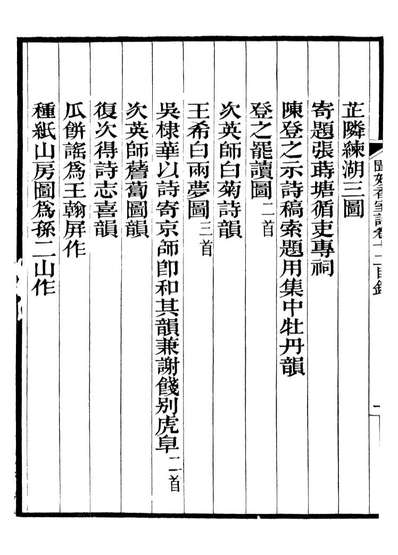 芷隣練湖三圖
寄題張蒔塘循吏專祠
陳登之示詩稿索題用集中牡丹韻
登之罷讀圖二首
次英師白菊詩韻
王希白兩夢圖三首
吳棣華以詩寄京師卽和其韻兼謝餞別虎阜二首
次英師薝蔔圖韻
復次得詩志喜韻
瓜餅謠爲王翰屏作
種紙山房圖爲孫二山作
室詩卷十二目錄
一